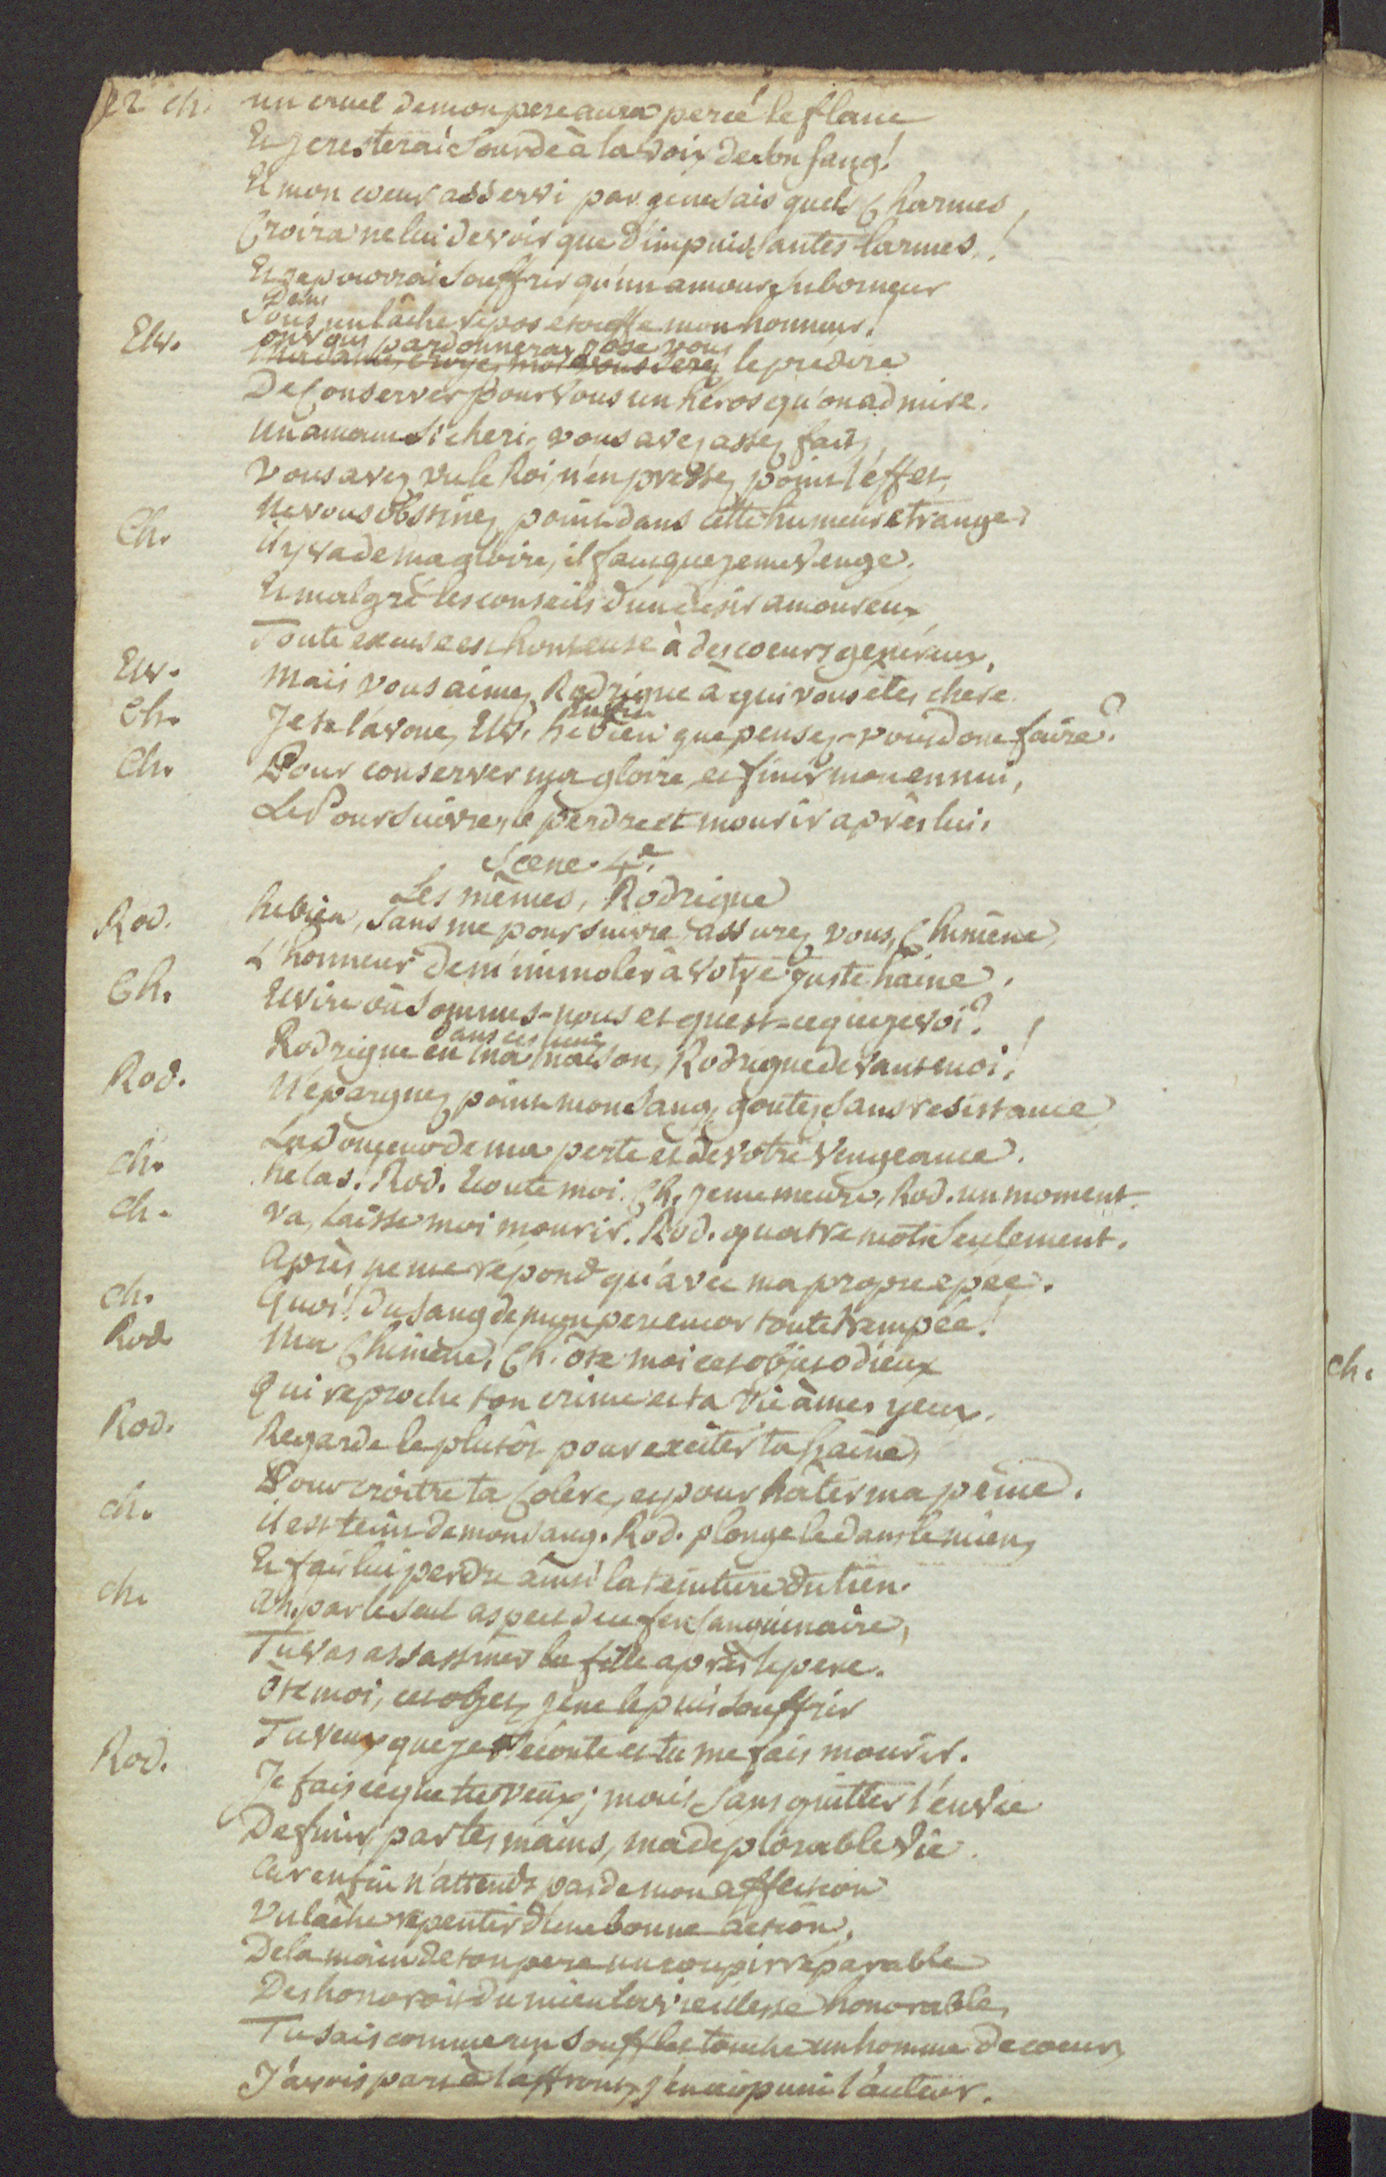 22 ch. un cruel de mon pere aura percé le flanc
Et je resterai sourde à la voix de son sang!
Et mon coeur asservi par je ne sais quels Charmes,
Croira ne lui devoir que d'impuissantes larmes!
Et je pourrai souffrir qu'un amour suborneur
Dans
Sous un lâche repos etouffe mon honneur!
on vous pardonnera, j'ose vous
Elv. Madame, croyez moi vous serez le predire
De Conserver pour vous un héros qu'on admire.
Un amant si cheri, vous avez assez fait,
Vous avez vu le Roi, n'en pressez point l'effet,
Ne vous obstinez point dans cette humeur etrange.
Ch. il y va de ma gloire, il faut que je me venge,
Et malgré les conseils d'un desir amoureux,
Toute excuse est honteuse à des coeurs genereux.
Elv. Mais vous aimez Rodrigue à qui vous êtes chere
enfin
Ch. Je te l'avoue, Elv. he bien que pensez-vous donc faire?
Ch. Pour conserver ma gloire et finir mon ennui,
Le Poursuivre, le perdre et mourir après lui.
Scene 4e.
Les mêmes, Rodrigue
Rod. he bien, sans me poursuivre assurez vous, Chimène,
L'honneur de m'immoler à votre juste haine.
Ch. Elvire où sommes-nous et qu'est-ce que je voi?
dans ces lieux
Rodrigue en ma maison, Rodrigue devant moi!
Rod. N'epargnez point mon sang, goutez sans resistance
La douceur de ma perte et de votre vengeance.
ch. helas! Rod. Ecoute moi. Ch. je me meurs, Rod. un moment
ch. va, laisse moi mourir. Rod. quatre mots seulement.
Après ne me répond qu'avec ma propre epée.
ch. Quoi! du sang de mon pere encor toute trempée!
Rod. Ma Chimène, Ch. ôte moi cet objet odieux
Qui reproche ton crime et ta vie à mes yeux.
Rod. Regarde le plutôt pour exciter ta haine,
Pour croître ta Colere, et pour hâter ma peine.
ch. il est teint de mon sang. Rod. plonge le dans le mien,
Et fais lui perdre ainsi la teinture du tien.
ch. ah, par le seul aspect de ce fer sanguinaire,
Tu vas assassiner la fille après le pere.
Ôte moi, cet objet, je ne le puis souffrir
Tu veux que je t'écoute et tu me fais mourir.
Rod. Je fais ce que tu veux; mais sans quitter l'envie
De finir par tes mains, ma deplorable vie.
Car enfin n'attends pas de mon affection
Un lâche repentir d'une bonne action.
De la main de ton pere un coup irréparable
Deshonoroit du mien la vieillesse honorable,
Tu sais comme un soufflet touche un homme de coeur,
J'avois part à l'affront, j'en ai puni l'auteur.
ch.